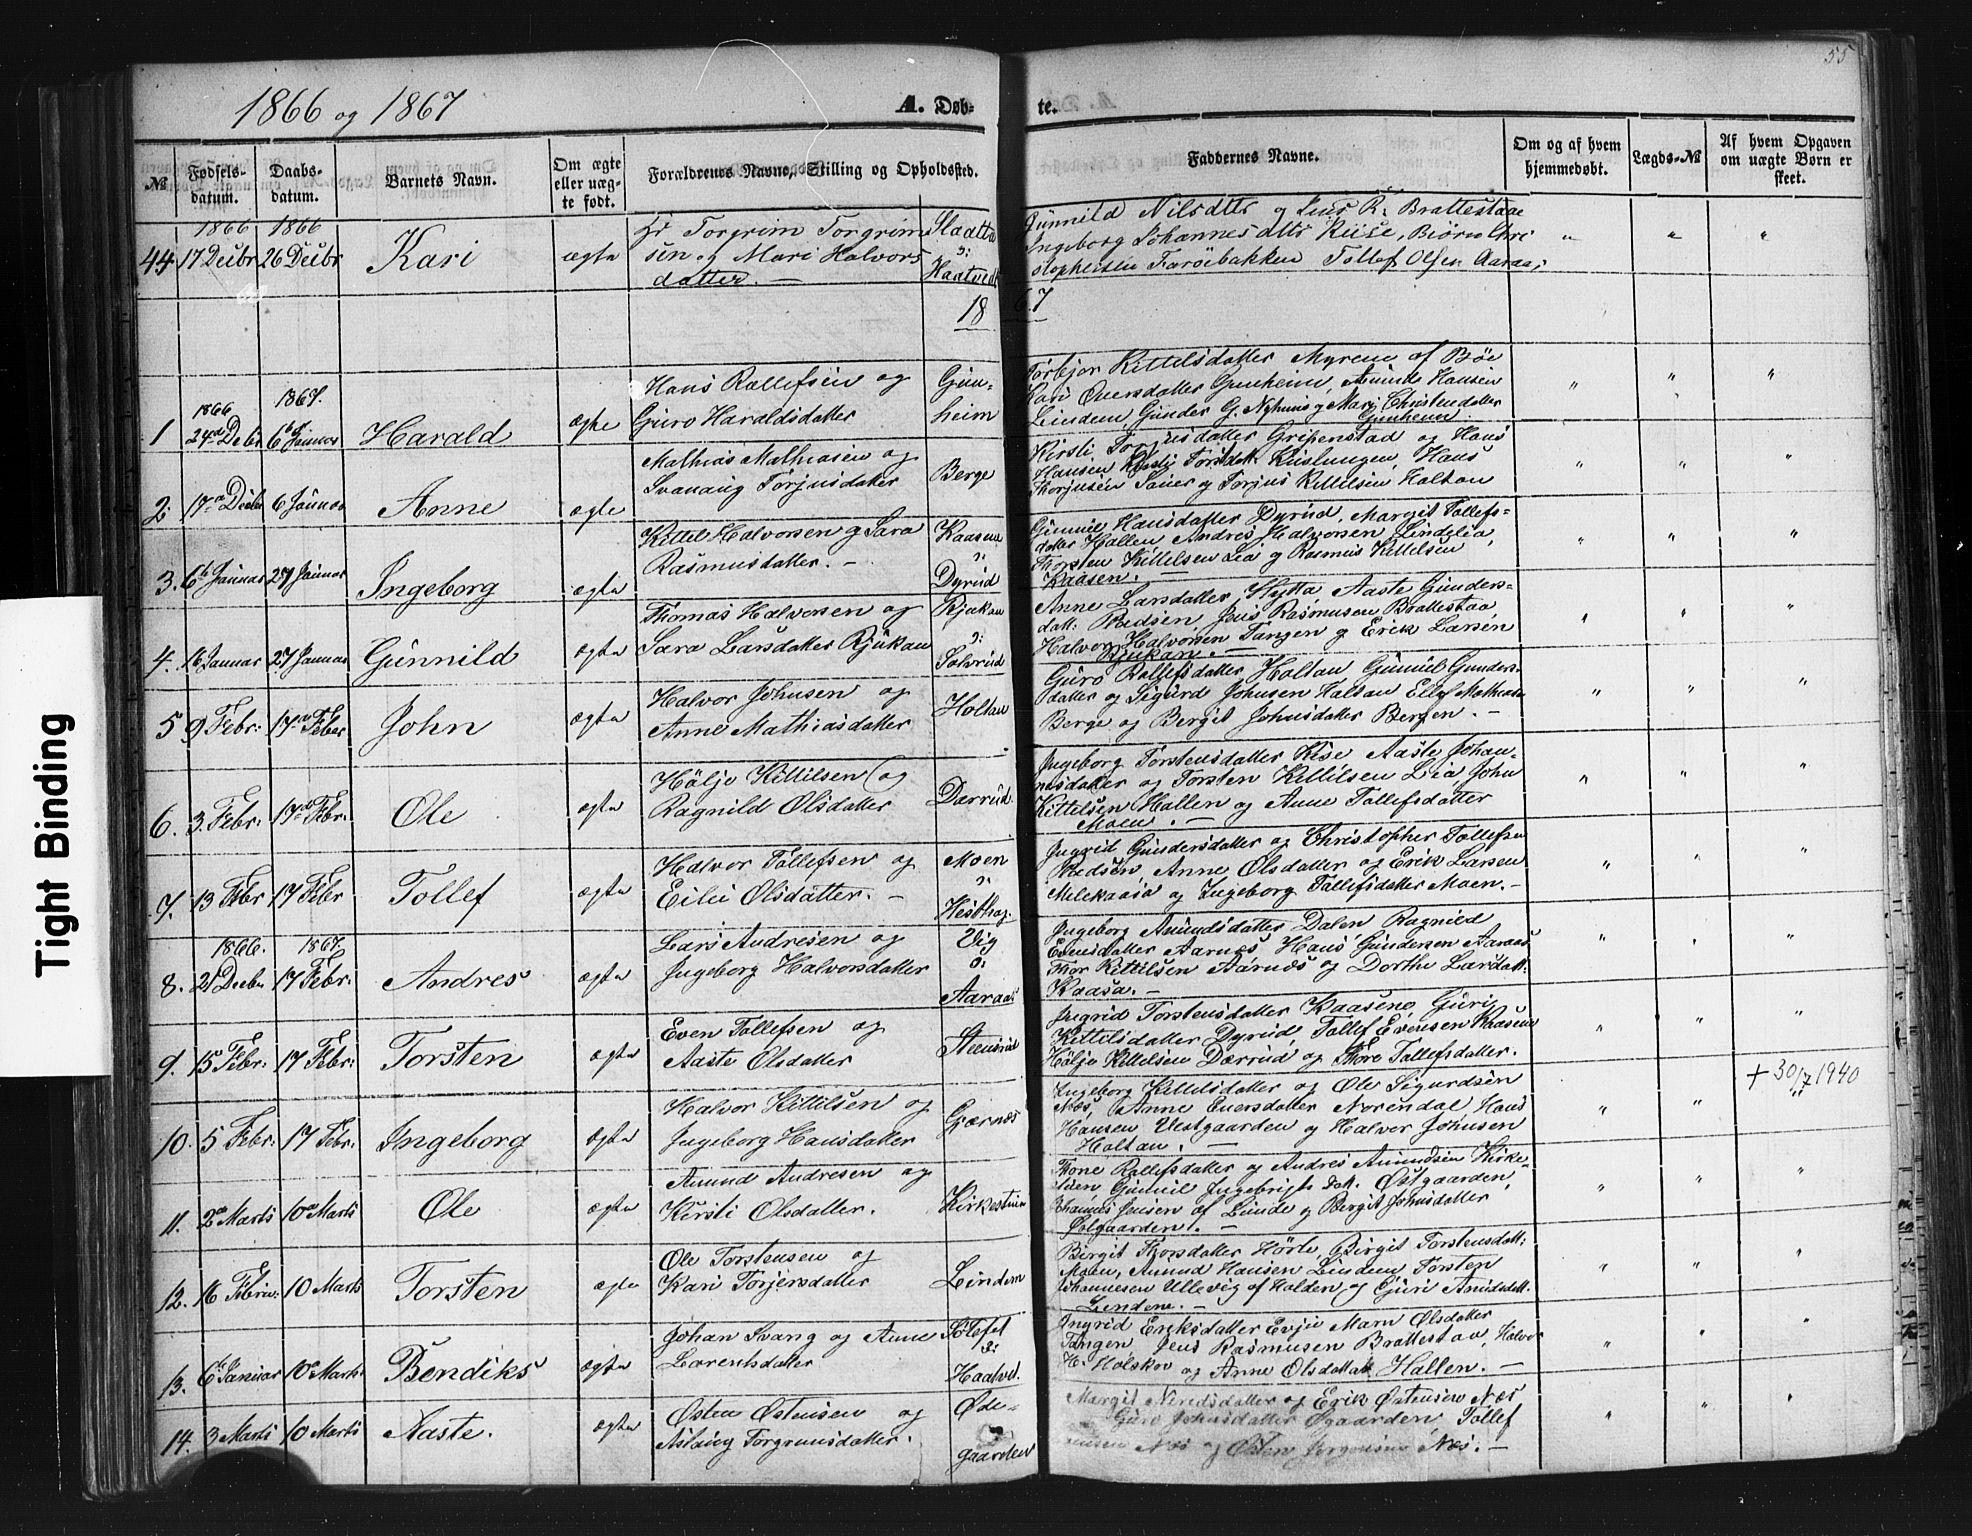 55
1866 og 1867
A. Døb-
te.
№
Fødsels-
datum.
Daabs-
datum.
Barnets Navn.
Om ægte
eller uæg-
te født.
Forældrenes Navne, Stilling og Opholdssted.
Faddernes Navne.
Om og af hvem
hjemmedøbt.
Lægds-№
Af hvem Opgaven
om uægte Børn er
skeet.
1866 1866
44 17 Decbr 26 Decbr Kari ægte
Torgrim Torgrim
sen og Mari Halvors
datter. —
Slaatta
Haatvedt
Gunnild Nilsdtr og Jens R. Brattestaae
Ingeborg Johannesdtr Kiise, Biørn Chri
stophersen Farøebakken Tollef Olsen Aaraas
18 67
1866 1867.
1 24de Debr 6te Januar Harald ægte
Hans Rollefsen og
Guro Haraldsdatter
Gun-
heim
Torbjør Kittelsdatter Myrene af Bøe
Kari Evensdatter Gunheim, Amund Hansen
Lindem, Gunder G. Nyhuus og Mari Christendatter
Gunheim
2. 17de Decbr 6 Januar Anne ægte
Mathias Mathiasen og
Svanaug Torjusdatter
Berge
Kirsti Torjusdatter Gripenstad og Hans
Hansen
Thorjusen Sauer og Torjus Kittilsen Holtan
3. 6te Januar 27 Januar Ingeborg ægte
Kittel Halvorsen og Sara
Rasmusdatter. —
Kaasene
Dyrud
Gunnil Hansdatter Dyrud, Margit Tollefs-
datter Hallen Andres Halvorsen Lindelia,
Torsten Kittelsen Lia og Rasmus Kittelsen
Kaasen. —
4. 16 Januar 27 Januar Gunnild ægte
Thomas Halvorsen og
Sara Larsdatter Rjukan
Rjukan
Solvrud
Anne Larsdatter Hytta Aaste Gunders-
datt. Redsen Jens Rasmusen Brattestaa,
Halvor Halvorsen Tangen og Erik Larsen
Rjukan. —
5 9 Febr: 17de Febr John ægte
Halvor Johnsen og
Anne Mathiasdatter
Holtan
Guro Rollefsdatter Holtan Gunnil Gunders-
datter og Sigurd Johnsen Holtan Ellef Mathiasen
Berge og Bergit Johnsdatter Bergen. —
6. 3. Febr: 17de Febr: Ole ægte
Hølje Kittilsen og
Ragnild Olsdatter
Dærrud.
Ingeborg Torstensdatter Kise Aaste Johan-
nesdatter og Torsten Kittilsen Lia John
Kittelsen Hallen og Anne Tollefsdatter
Moen. —
7. 13 Febr 17 Febr Tollef ægte
Halvor Tollefsen og
Eilie Olsdatter. —
Moen
Vesthag.
Ingrid Gundersdatter og Christopher Tollefsen
Redsen, Anne Olsdatter og Erik Larsen
Melekaasa og Ingeborg Tollefsdatter Moen. —
1866. 1867.
8. 21 Decbr 17 Febr: Andres ægte
Lars Andresen og
Ingeborg Halvorsdatter
Vig
Aaraas
Ingeborg Amundsdatter Dalen Ragnild
Evensdatter Aarnes, Hans Gundersen Aaraas
Thor Kittilsen Aarnæs og Dorthe Larsdatt.
Kaasa. —
9. 15 Febr: 17 Febr: Torsten ægte
Even Tollefsen og
Aaste Olsdatter
Steensrud
Ingrid Torstensdatter Kaasene, Guri
Kittilsdatter Dyrud, Tollef Evensen Kaasene
Hølje Kittelsen Dærrud og Thore Tollefsdatter.
+ 30/7 1940
10. 5 Febr: 17 Febr: Ingeborg ægte
Halvor Kittilsen og
Ingeborg Hansdatter
Gjernæs
Ingeborg Kittilsdatter og Ole Sigurdsen
Næs, Anne Eversdatter Norendal Hans
Hansen Vestgaarden og Halvor Johnsen
Holtan. —
11. 2de Marts 10de Marts Ole ægte
Amund Andresen og
Kirsti Olsdatter.
Kirkestuen
Thone Rollefsdatter og Andres Amundsen Kirke-
stuen Gunnil Ingebrigts datt. Østgaarden,
Johannes Jensen af Lunde og Bergit Johnsdatter
12. 16 Febru: 10 Marts Torsten ægte
Ole Torstensen og
Kari Torjersdatter
Lindem
Birgit Thorsdatter Hørte, Birgit Torstensdatt:
Moen, Amund Hansen Lindem Torsten
Johannesen Ullevig af Holden og Guri Amundsdatt.
Lindene. —
13. 6te Januar 10de Marts Bendiks ægte
Johan Svang og Anne
Lorentsdatter
Haatvd.
Ingrid Eriksdatter Evju Marn Olsdatter
Tangen Jens Rasmusen Brattestaa, Halvor
H. Holskov og Anne Olsdatter Hallen. —
14. 3 Marts 10 Marts Aaste. ægte
Østen Østensen og
Aslaug Torgrimsdatter.
Øde-
gaarden
Margit Niridsdatter og Erik Østensen Næs
Guro Johnsdatter Øgaarden, Tollef
Næs og Østen Jørgensen Næs. —
Tight Binding